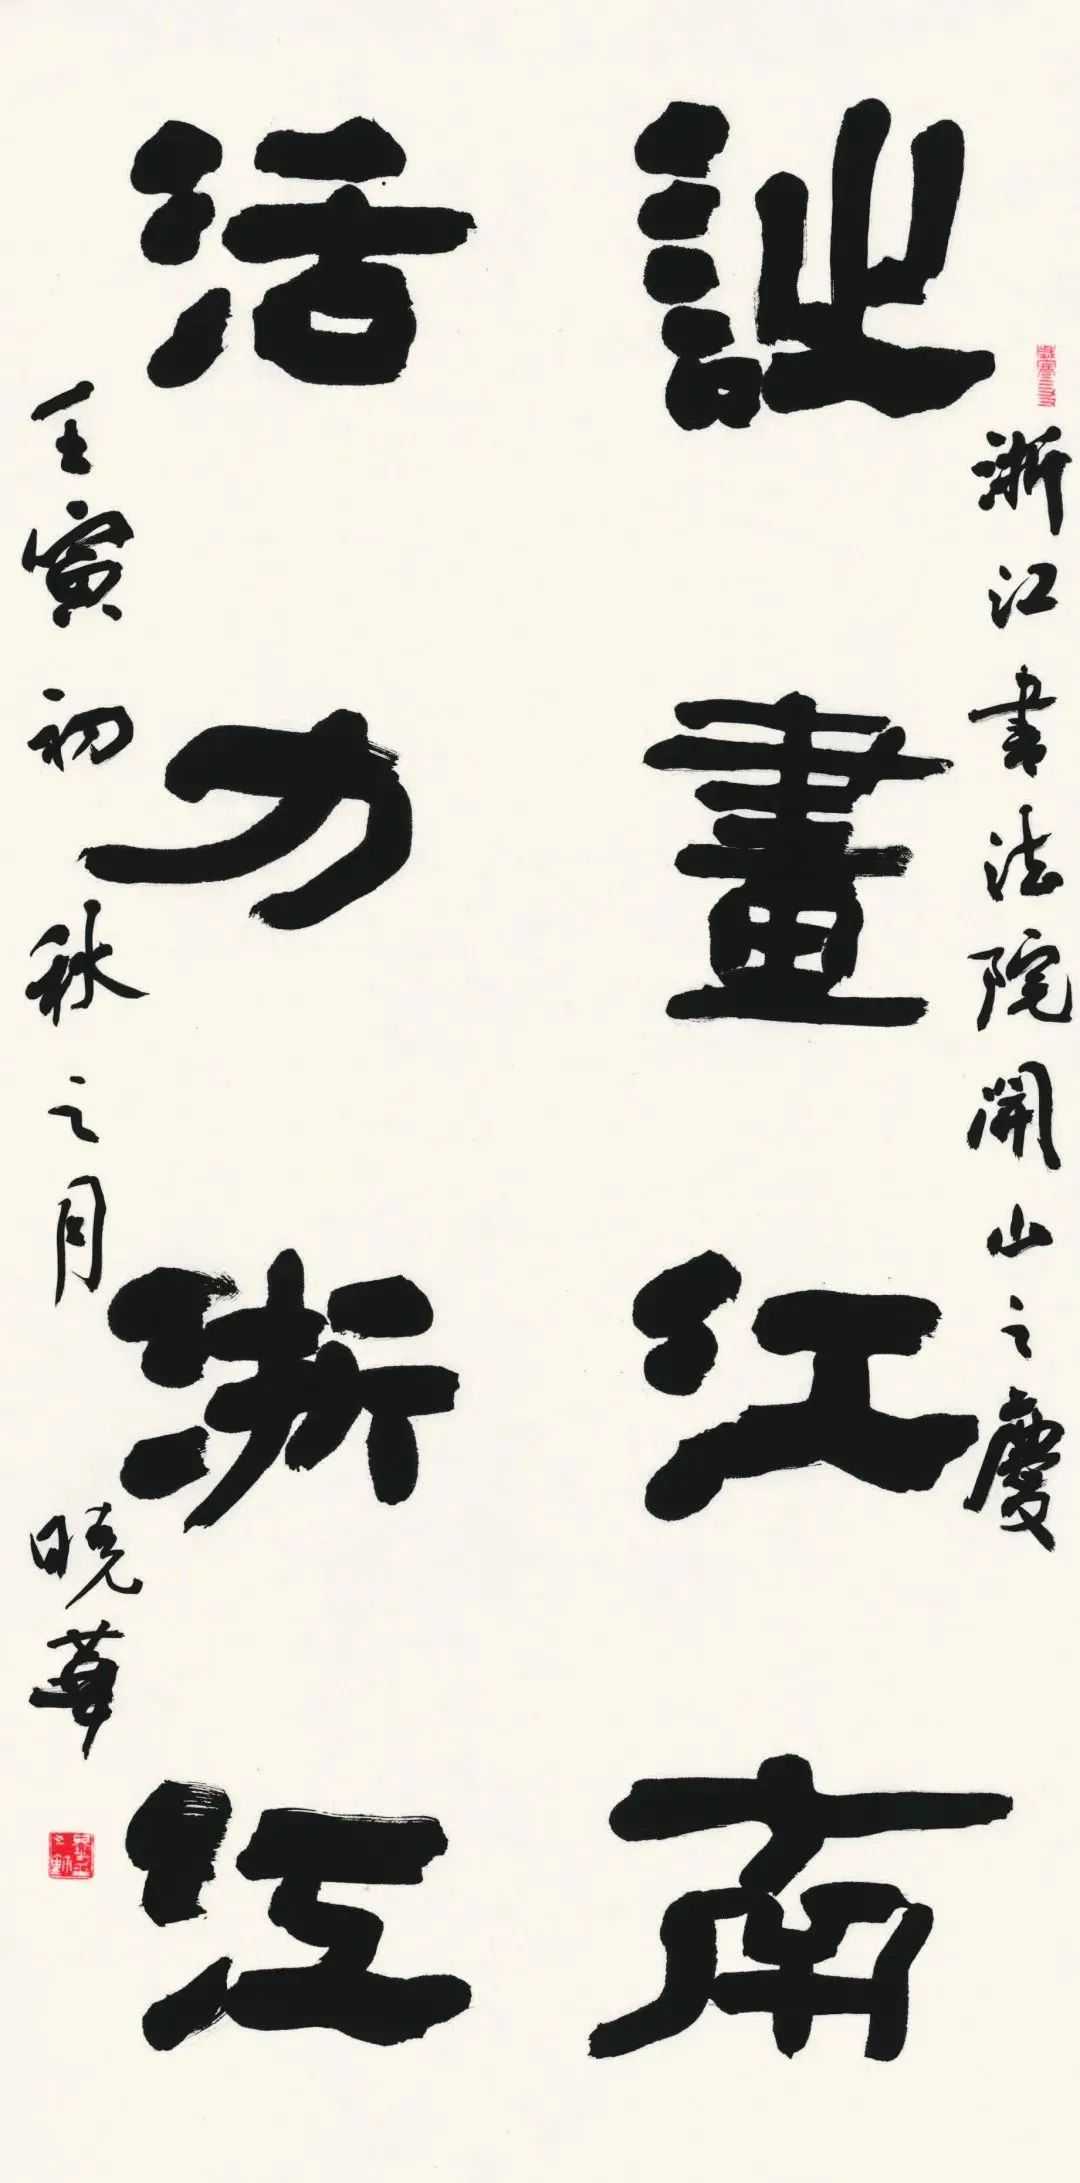 浙江書法院開山之慶
詩畫江南
活力浙江
壬寅初秋之月 曉華